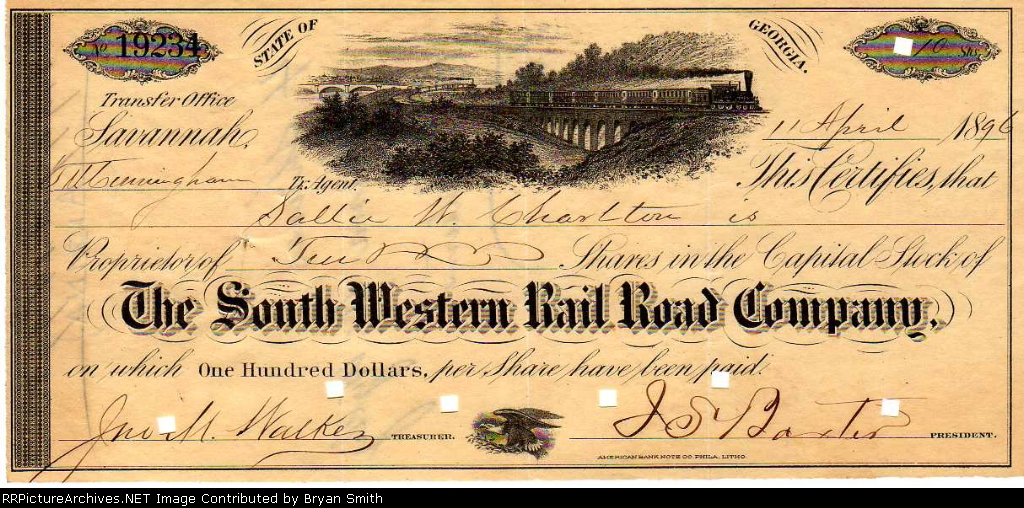 No 19234
STATE OF
GEORGIA.
10 Shs
Transfer Office
Savannah,
11 April 1896
Cunningham Tr. Agent.
This Certifies, that
Sallie W. Charlton is
Proprietor of Ten Shares in the Capital Stock of
The South Western Rail Road Company,
on which One Hundred Dollars, per Share have been paid.
Jno. M. Walker TREASURER.
J S Baxter PRESIDENT.
AMERICAN BANK NOTE CO. PHILA. LITHO.
RRPictureArchives.NET Image Contributed by Bryan Smith